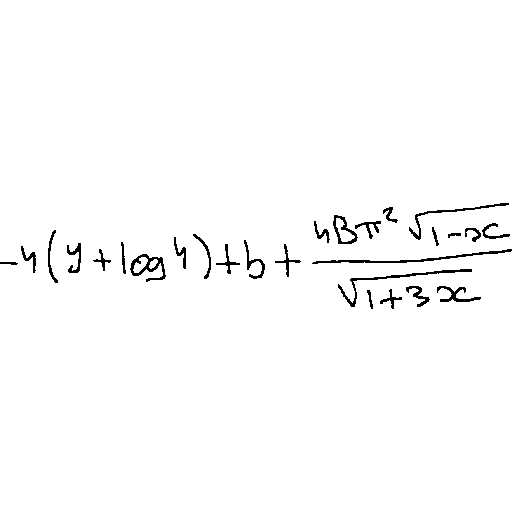 -4(y+log 4)+b+\frac{4Bπ^2\sqrt{1-x}}{\sqrt{1+3x}}